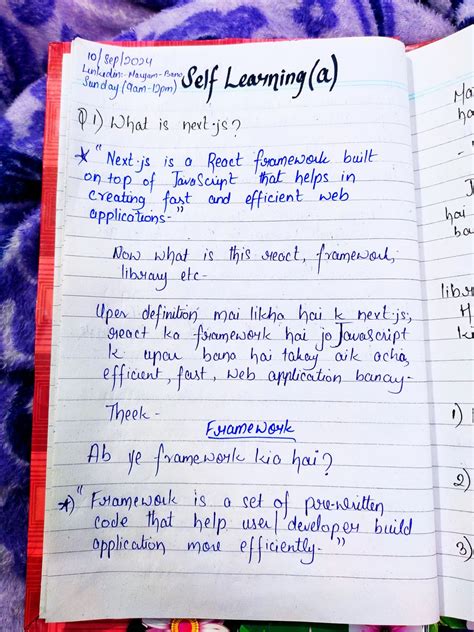 10/Sep/2024
Linkedin:- Maryam-Bano
Sunday (9am-12pm)
Self Learning (a)
Q 1) What is next.js?
* "Next.js is a React framework built
on top of JavaScript that helps in
creating fast and efficient web
applications."
Now what is this react, framework,
library etc-
Uper definition mai likha hai k next.js,
react ka framework hai jo Javascript
k upar bana hai takay aik acha,
efficient, fast, web application banay-
Theek-
Framework
Ab ye framework kia hai?
* "Framework is a set of pre-written
code that help user/developer build
application more efficiently."
Mai
ha
hai
ba
libr
ki
1)
2)
3)